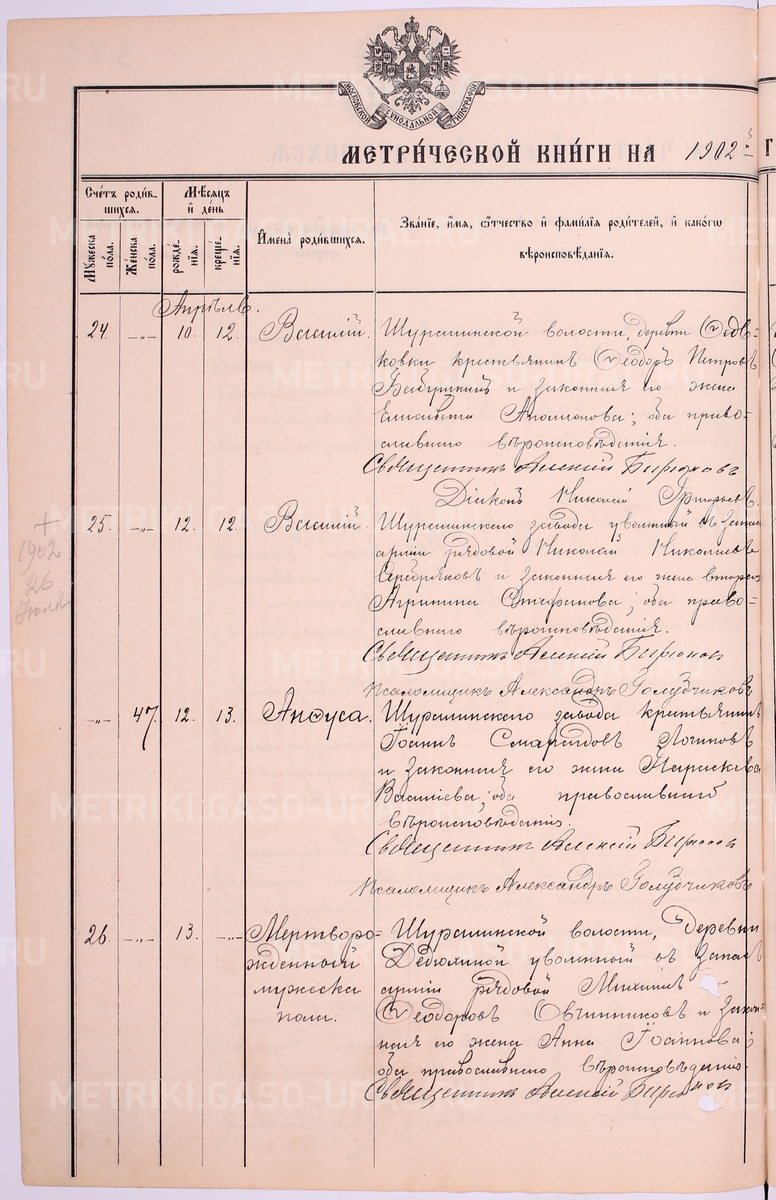 МОСКОВСКОЙ СѴНОДАЛЬНОЙ ТИПОГРАФІИ
МЕТРИ́ЧЕСКОЙ КНИ́ГИ НА 1902
Сче́тъ роди́в-
шихся.
Мѣ́сяцъ
и҆ де́нь
Имена̀ роди́вшихся.
Зва́нїе, и҆́мя, ѻ҆́тчество и҆ фами́лїя роди́телей, и҆ како́гѡ
вѣроисповѣ́данїя.
Мꙋ́жеска
по́ла.
Же́нска
по́ла.
рожде́-
нїя.
креще́-
нїя.
Апрѣль.
24. -„- 10. 12. Василій. Шуралинской волости, деревни Ѳедь-
ковки крестьянинъ Ѳеодоръ Петровъ
Бабушкинъ и законная его жена
Елисавета ; оба право-
славнаго вѣроисповѣданія.
Священникъ Алексій Бирюковъ
Діаконъ Николай Григорьевъ.
25. -„- 12. 12. Василій. Шуралинскаго завода уволенный въ запас
арміи рядовой Николай Николаевъ
Серебряковъ и законная его жена втораго
Агрипина Стефанова; оба право-
славнаго вѣроисповѣданія.
Священникъ Алексій Бирюковъ
Псаломщикъ Александръ Голубчиковъ
+
1902
26
Іюля
-„- 47. 12. 13. Анѳуса. Шуралинскаго завода крестьянинъ
Іоаннъ Смарагдовъ Логиновъ
и законная его жена Параскева
Васильева; оба православнаго
вѣроисповѣданія.
Священникъ Алексій Бирюковъ
Псаломщикъ Александръ Голубчиковъ
26. -„- 13. -„- Мертворо- Шуралинской волости, деревни
жденный Дедюхиной уволенный въ запасъ
мужеска арміи рядовой Михаилъ
пола. Ѳеодоровъ Овчинниковъ и закон-
ная его жена Анна Іоаннова;
оба православнаго вѣроисповѣданія.
Священникъ Алексій Бирюковъ
METRIKI.GASO-URAL.RU